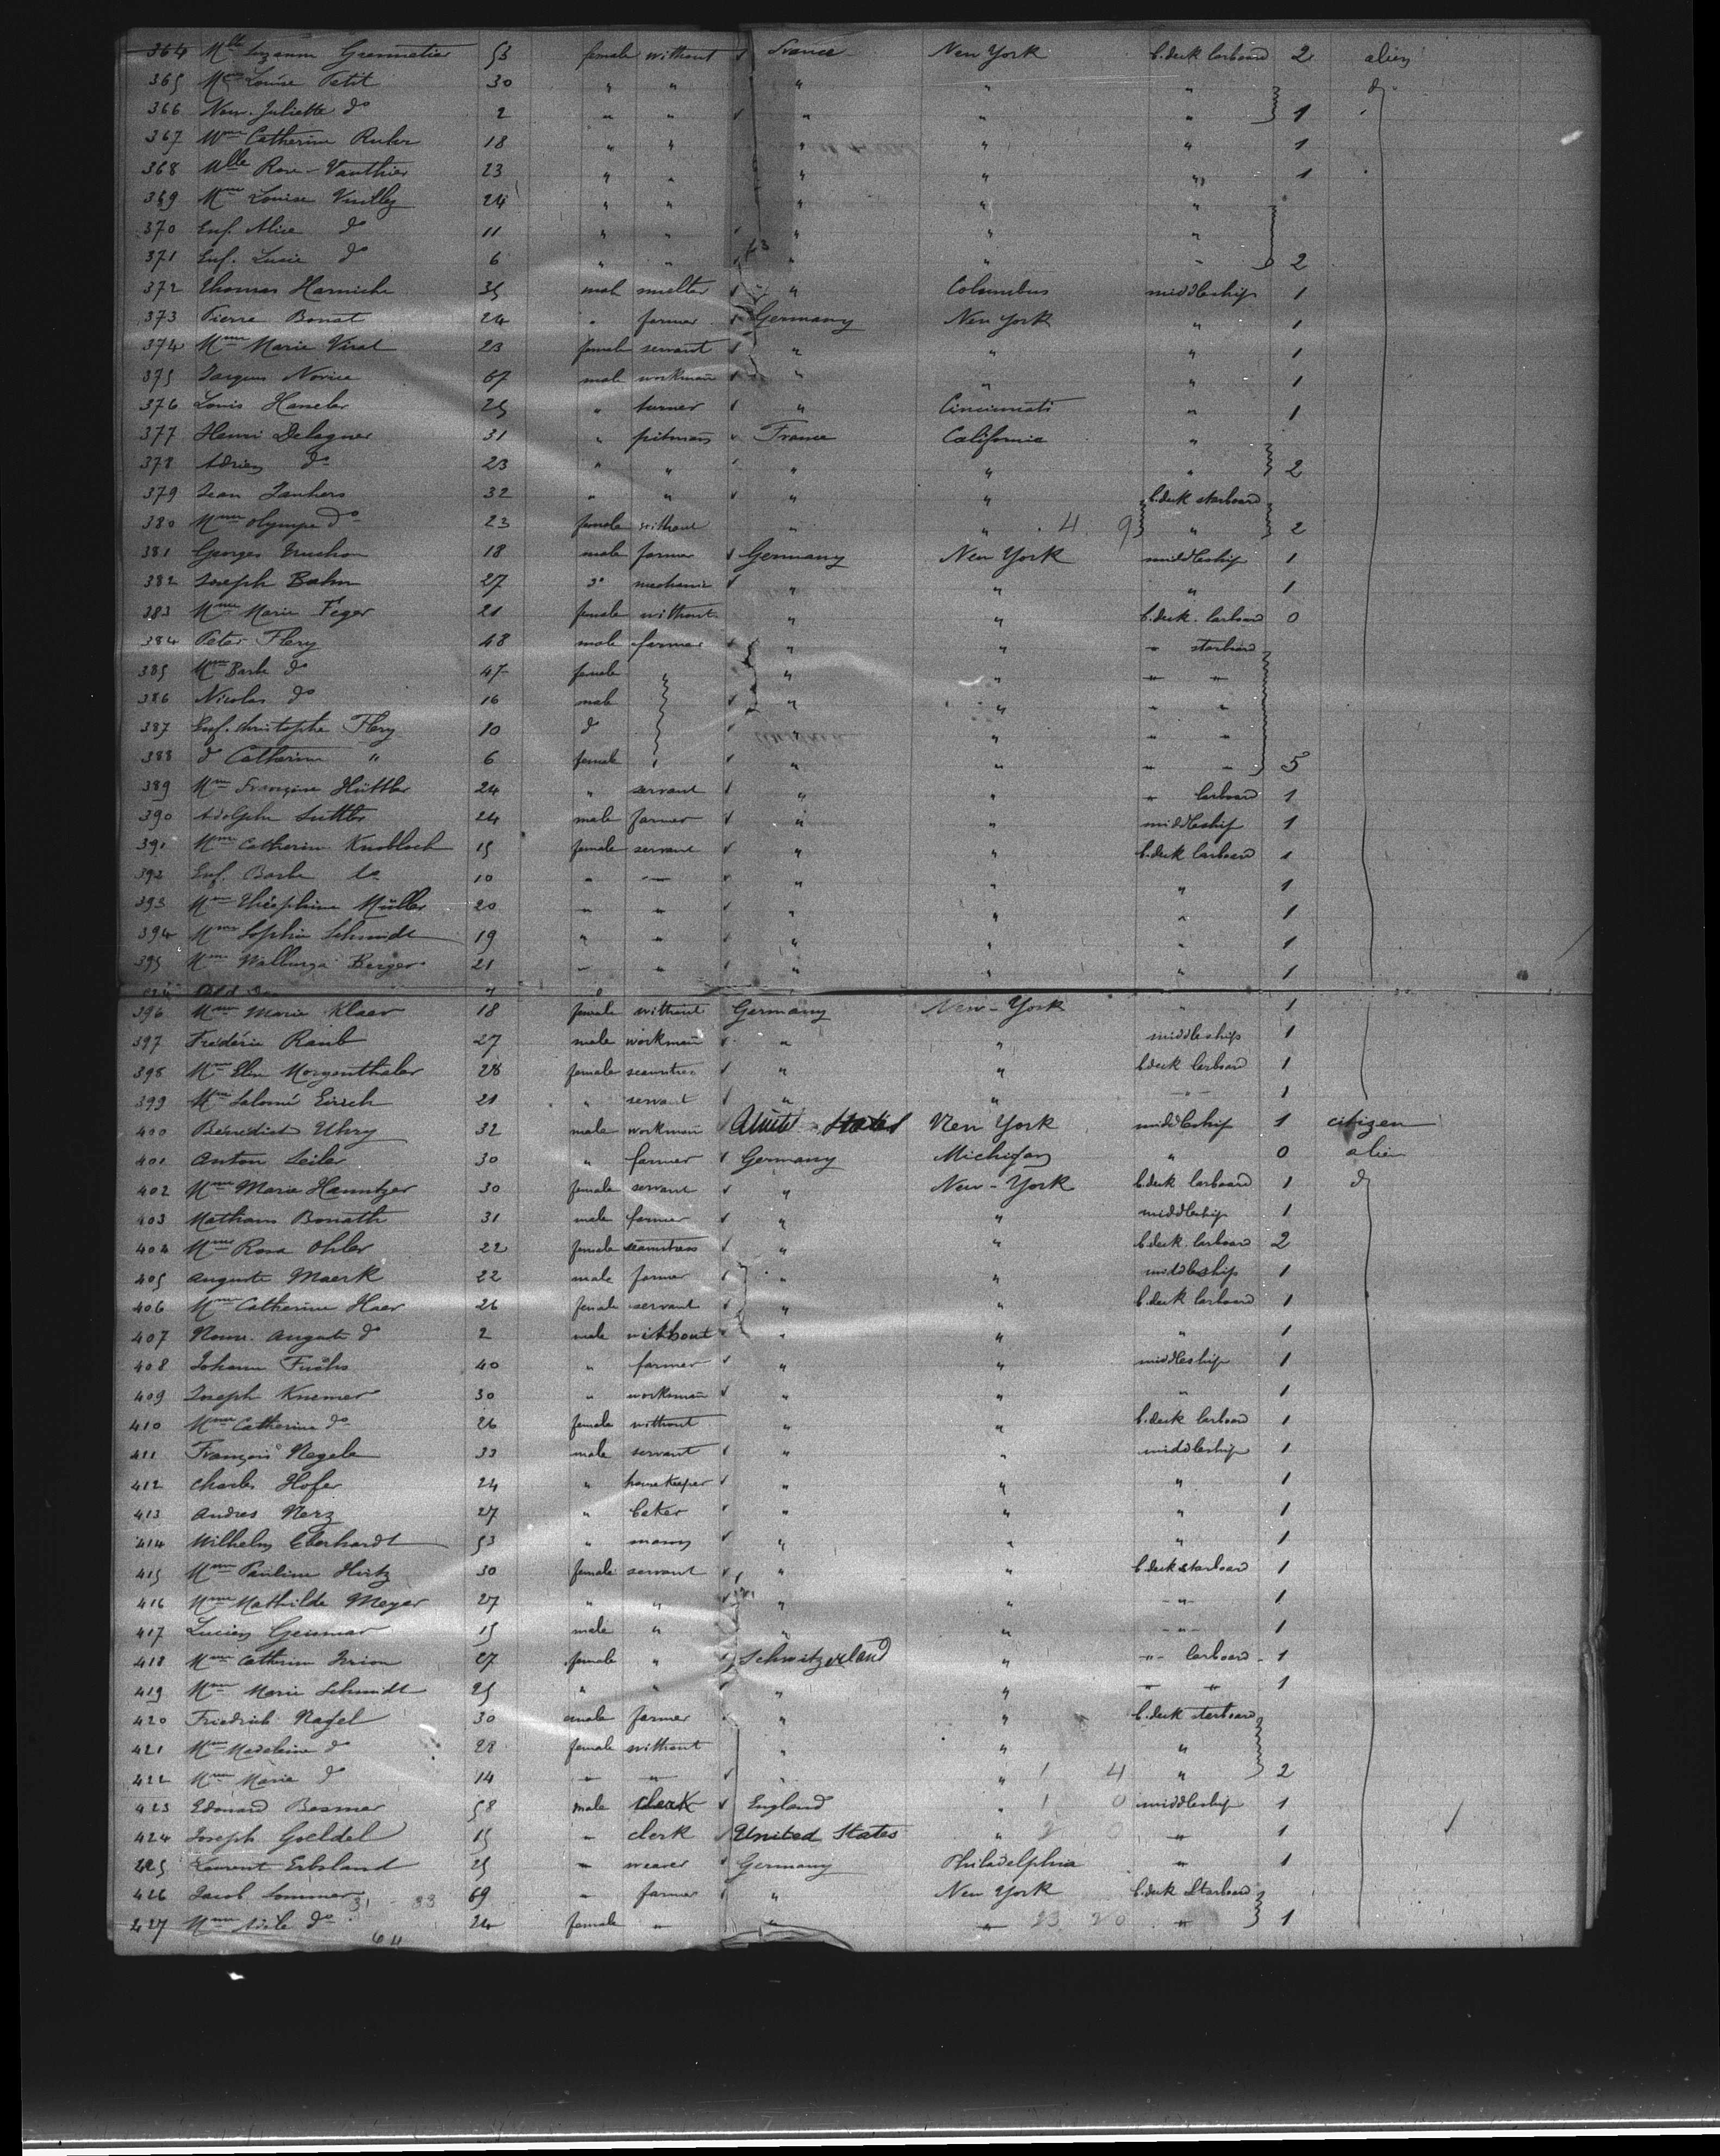 364 Mlle Suzanne Grennetier 53 female without France New York b. deck larboard 2 alien
365 Mme Louise Petit 30 " " " " " do
366 Nour. Juliette do 2 " " " " " 1
367 Mme Catherine 18 " " " " " 1
368 Mlle Rose Vauthier 23 " " " " " 1
369 Mme Louise 24 " " " " "
370 Enf. Alice do 11 " " " " "
371 Enf. Lucie do 6 " " " " " 2
372 Thomas Harniche 35 male smelter " Columbus middleship 1
373 Pierre Bonat 24 " farmer Germany New York " 1
374 Mme Marie Virat 23 female servant " " " 1
375 Jacques Novice 67 male workman " " " 1
376 Louis 25 " turner " Cincinnati " 1
377 Henri Delagner 31 " pitman France California "
378 Adrien do 23 " " " " " 2
379 Jean 32 " " " " b. deck starboard
380 Mme Olympe do 23 female without " " 4 9 " 2
381 Georges Truchon 18 male farmer Germany New York middleship 1
382 Joseph Boehm 27 do mechanic " " " 1
383 Mme Marie Feger 21 female without " " b. deck larboard 0
384 Peter Flery 48 male farmer " " " starboard
385 Mme Barbe do 47 female " " " " "
386 Nicolas do 16 male " " " "
387 Enf. Christophe Flery 10 do " " " "
388 do Catherine " 6 female " " " " 5
389 Mme Françoise Hüttler 24 " servant " " " larboard 1
390 Adolphe Suttler 24 male farmer " " middleship 1
391 Mme Catherine Knobloch 15 female servant " " b. deck larboard 1
392 Enf. Barbe do 10 " — " " " 1
393 Mme Théophine Müller 20 " " " " " 1
394 Mme Sophie Schmidt 19 " " " " " 1
395 Mme Walburga Berger 21 " " " " " 1
396 Mme Marie Klaer 18 female without Germany New-York " 1
397 Frédéric Raub 27 male workman " " middleship 1
398 Mme Elen Morgenthaler 28 female seamstres " " b. deck larboard 1
399 Mme Salomé Eirich 21 " servant " " " 1
400 Bénédict Uhry 32 male workman United States New York middleship 1 citizen
401 Anton Seiler 30 " farmer Germany Michigan " 0 alien
402 Mme Marie Hauntzer 30 female servant " New-York b. deck larboard 1 do
403 Mathaus Bonath 31 male farmer " " middleship 1
404 Mme Rosa Ohler 22 female seamstress " " b. deck larboard 2
405 Auguste Maerk 22 male farmer " " middleship 1
406 Mme Catherine Haer 26 female servant " " b. deck larboard 1
407 Nour. Auguste do 2 male without " " " 1
408 Johann Fuchs 40 " farmer " " middleship 1
409 Joseph Knemer 30 " workman " " " 1
410 Mme Catherine do 26 female without " " b. deck larboard 1
411 François Negele 33 male servant " " middleship 1
412 Charles Hofer 24 " housekeeper " " " 1
413 Andres Nerz 27 " baker " " " 1
414 Wilhelm Eberhardt 53 " mason " " " 1
415 Mme Pauline Hirtz 30 female servant " " b. deck starboard 1
416 Mme Mathilde Meyer 27 " " " " " 1
417 Lucien Geismar 15 male " " " " 1
418 Mme Catherine Irion 27 female " Schwitzerland " " larboard 1
419 Mme Marie Schmidt 25 " " " " " " 1
420 Friedrich Nagel 30 male farmer " " b. deck starboard
421 Mme Madeleine do 28 female without " " "
422 Mme Marie do 14 " " " " 1 4 " 2
423 Edouard Besmer 58 male clerk England " 1 0 middleship 1
424 Joseph Goeldel 15 " clerk United States " 2 0 " 1
425 Laurent Erbsland 25 " weaver Germany Philadelphia " 1
426 Jacob Sommer 31 83 69 " farmer " New York b. deck starboard
427 Mme Adèle do 24 female " " " 23 20 " 1
64